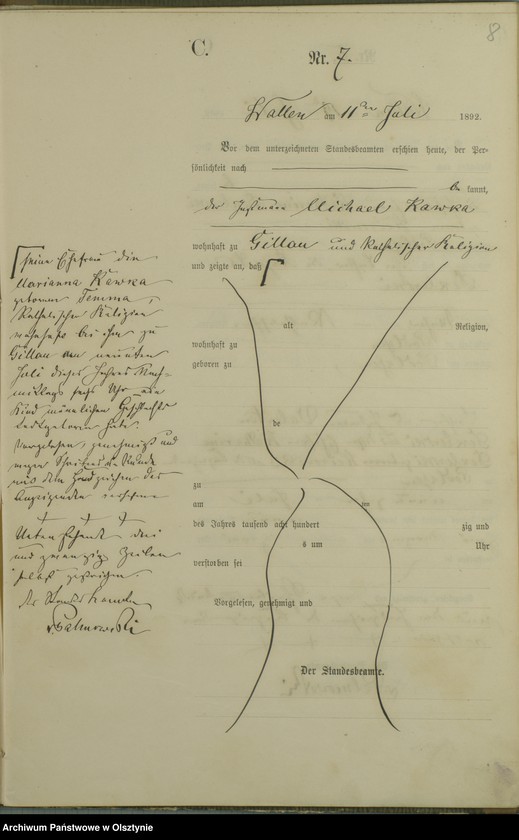 8
C.
Nr. 7.
Wallen am 11ten Juli 1892.
Vor dem unterzeichneten Standesbeamten erschien heute, der Per-
sönlichkeit nach
be kannt,
der Instmann Michael Kawka
wohnhaft zu Gillau und katholischer Religion
und zeigte an, daß
seine Ehefrau die
Marianna Kawka
geborene Temma,
katholischer Religion
wohnhaft bei ihm zu
Gillau am neunten
Juli dieses Jahres Nach-
mittags sechs Uhr ein
Kind männlichen Geschlechts
todtgeboren habe.
Vorgelesen, genehmigt und
wegen Schreibens Unkunde
mit dem Handzeichen des
Anzeigenden versehen
+ + +
Untenstehende drei
und zwanzig Zeilen
gestrichen.
Der Standesbeamte
alt Religion,
wohnhaft zu
geboren zu
de
zu
am ten
des Jahres tausend acht hundert zig und
s um Uhr
verstorben sei
Vorgelesen, genehmigt und
Der Standesbeamte.
Archiwum Państwowe w Olsztynie